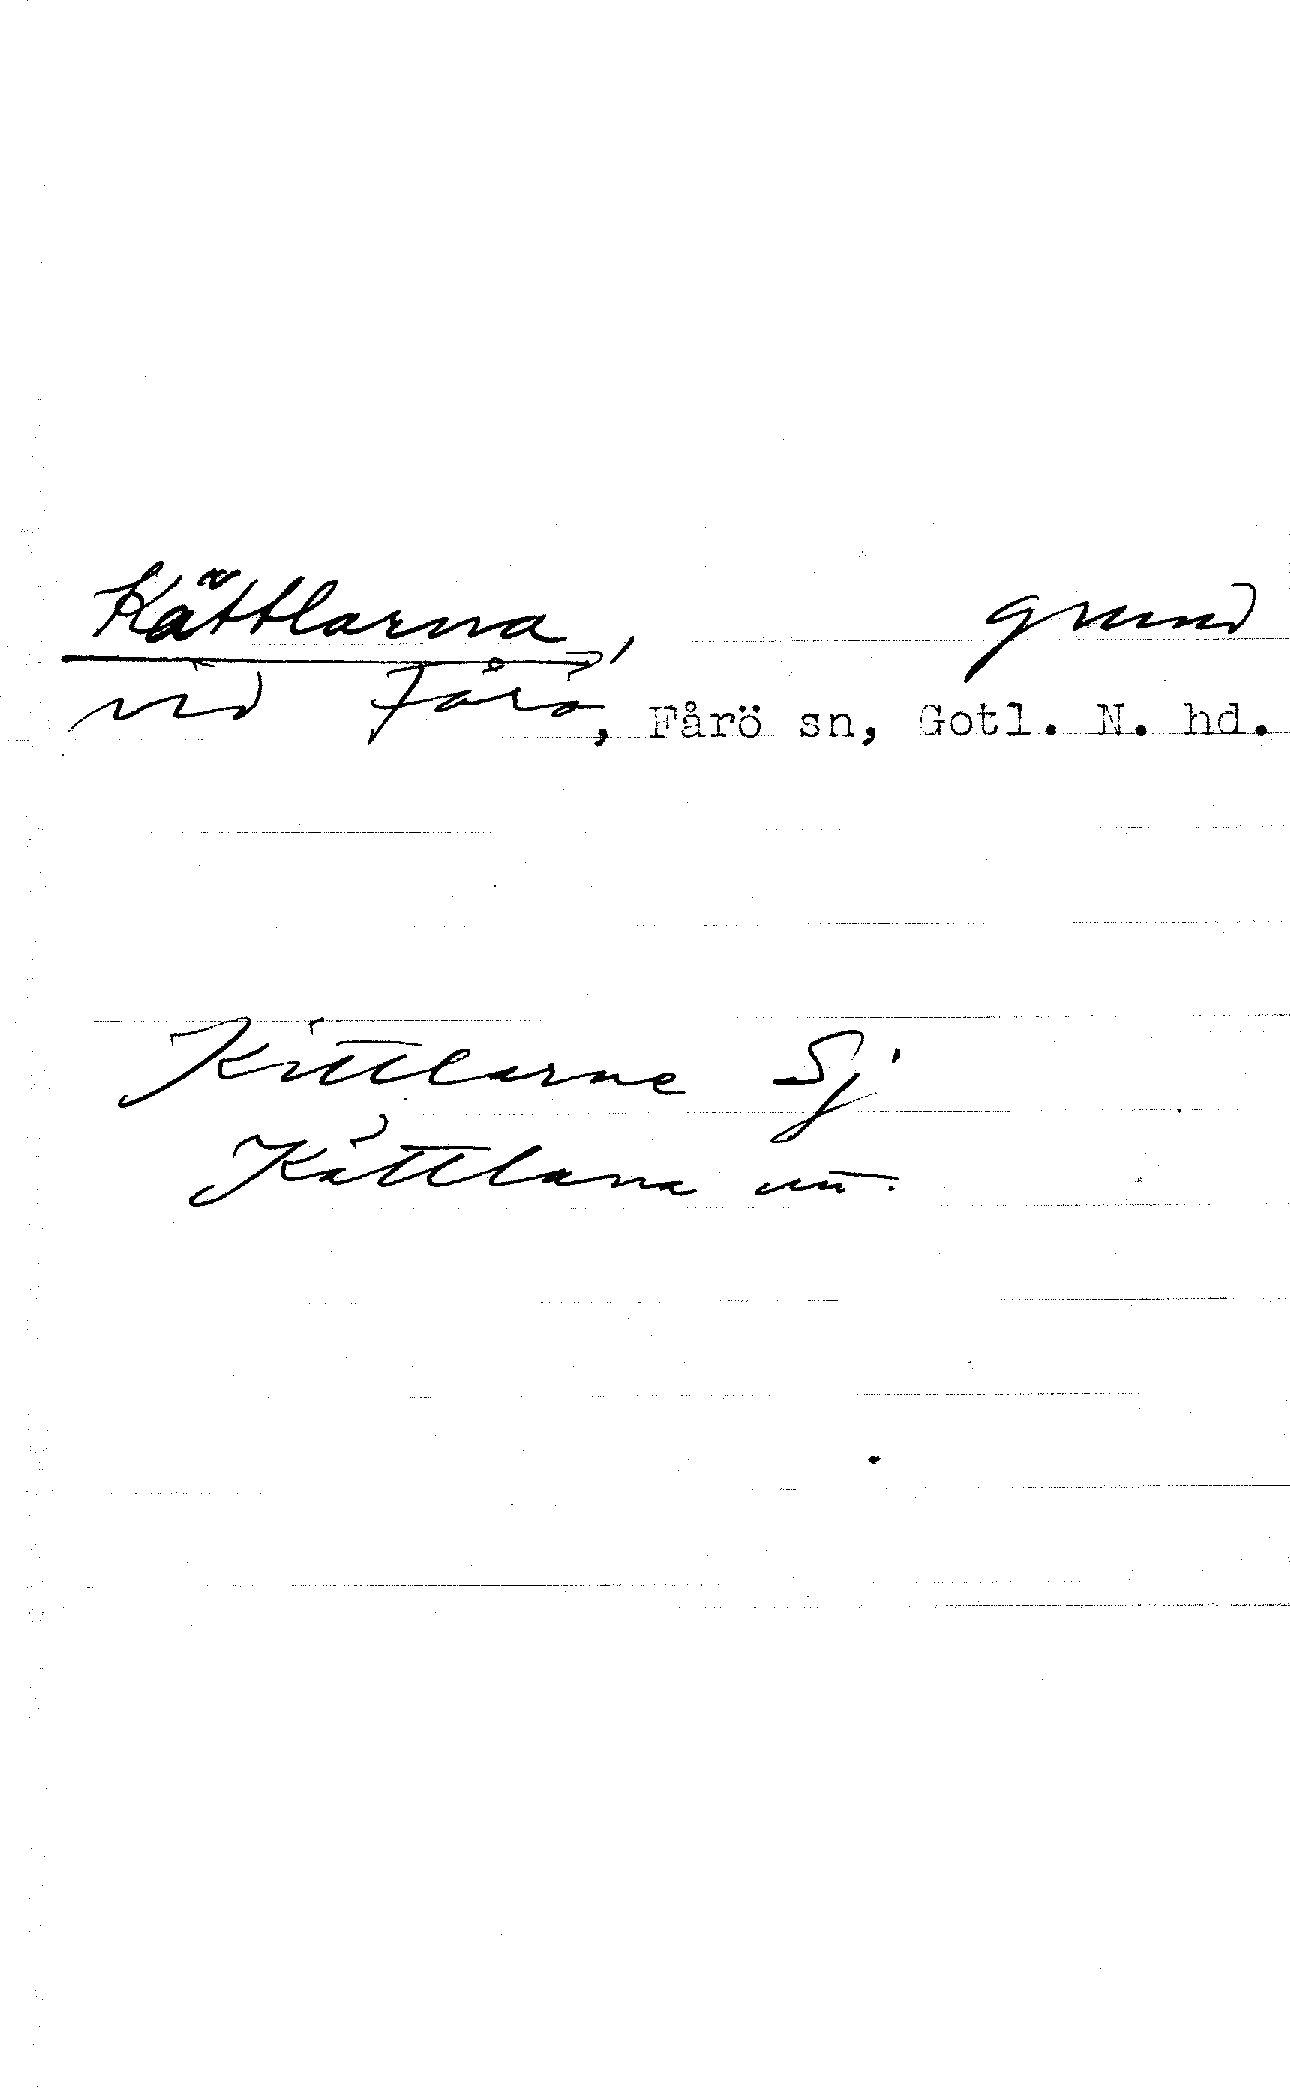 Kättlarna, grund
vid Fårö, Fårö sn, Gotl. N. hd.
Kittlarne Sj
Kättlana un.